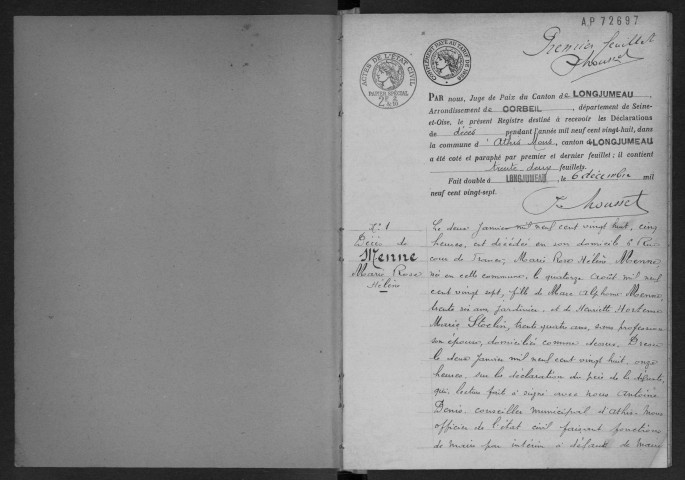 AP72697
Premier feuillet
JHousset
ACTES DE L'ÉTAT CIVIL
PAPIER SPÉCIAL
PAR nous, Juge de Paix du Canton de LONGJUMEAU
Arrondissement de CORBEIL, département de Seine-
et-Oise, le présent Registre destiné à recevoir les Déclarations
de décès pendant l'année mil neuf cent vingt-huit, dans
la commune d'Athis Mons, canton LONGJUMEAU
a été coté et paraphé par premier et dernier feuillet; il contient
trente deux feuillets.
Fait double à LONGJUMEAU, le 6 décembre mil
neuf cent vingt-sept.
JHousset
N° 1
Décès de
Menne
Marie Rose
Hélène
Le deux Janvier mil neuf cent vingt huit, cinq
heures, est décédée en son domicile 6 Rue
de France, Marie Rose Hélène Menne
née en cette commune, le quatorze Août mil neuf
cent vingt sept, fille de Marc Alphonse Menne
trente six ans jardinier, et de Henriette Hortense
Marie Stoclin, trente quatre ans, sans profession
son épouse, domiciliés comme dessus. Dressé
le deux janvier mil neuf cent vingt huit, onze
heures, sur la déclaration du père de la défunte,
qui, lecture faite a signé avec nous Antoine
Denis, conseiller municipal d'Athis-Mons
officier de l'état civil faisant fonctions
de maire par intérim à défaut de maire